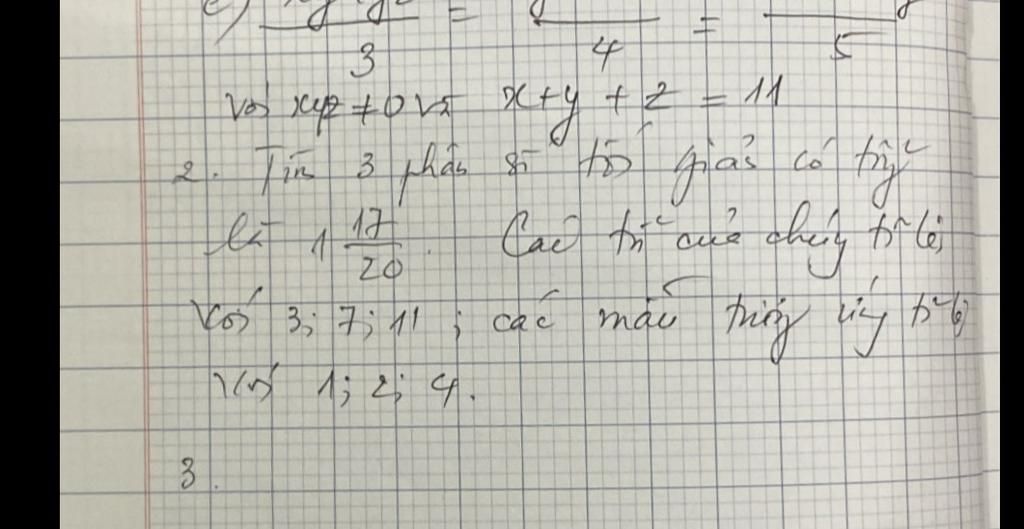 3 = 4 = 5
Với xyz ≠ 0 và x + y + z = 11
2. Tìm 3 phân số tối giản có tổng
là 1 17/20. Các tử của chúng tỉ lệ
Với 3; 7; 11; các mẫu tương ứng tỉ lệ
Với 1; 2; 4.
3.